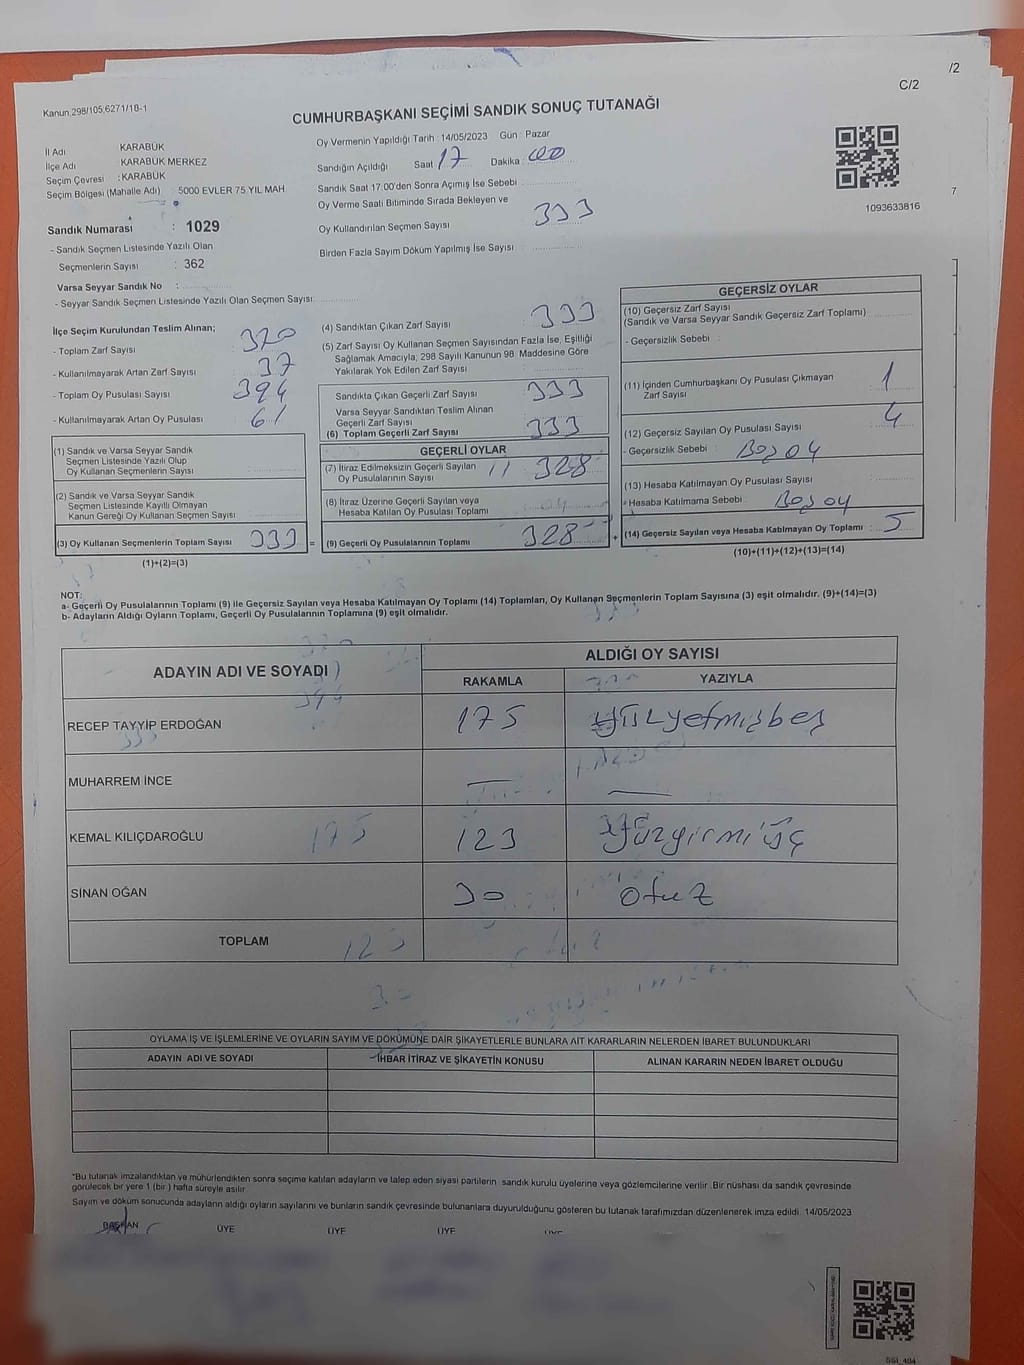 /2
C/2
Kanun 298/105,6271/18-1
CUMHURBAŞKANI SEÇİMİ SANDIK SONUÇ TUTANAĞI
İl Adı KARABÜK
İlçe Adı KARABÜK MERKEZ
Seçim Çevresi : KARABÜK
Seçim Bölgesi (Mahalle Adı) : 5000 EVLER 75.YIL MAH
Sandık Numarası : 1029
- Sandık Seçmen Listesinde Yazılı Olan
Seçmenlerin Sayısı : 362
Varsa Seyyar Sandık No :
- Seyyar Sandık Seçmen Listesinde Yazılı Olan Seçmen Sayısı:
Oy Vermenin Yapıldığı Tarih : 14/05/2023 Gün : Pazar
Sandığın Açıldığı Saat 17 Dakika 00
Sandık Saat 17:00'den Sonra Açımış İse Sebebi :
Oy Verme Saati Bitiminde Sırada Bekleyen ve
Oy Kullandırılan Seçmen Sayısı 333
Birden Fazla Sayım Döküm Yapılmış İse Sayısı :
7
1093633816
İlçe Seçim Kurulundan Teslim Alınan;
- Toplam Zarf Sayısı 370
- Kullanılmayarak Artan Zarf Sayısı 37
- Toplam Oy Pusulası Sayısı 394
- Kullanılmayarak Artan Oy Pusulası 61
(1) Sandık ve Varsa Seyyar Sandık
Seçmen Listesinde Yazılı Olup
Oy Kullanan Seçmenlerin Sayısı
(2) Sandık ve Varsa Seyyar Sandık
Seçmen Listesinde Kayıtlı Olmayan
Kanun Gereği Oy Kullanan Seçmen Sayısı
(3) Oy Kullanan Seçmenlerin Toplam Sayısı 333 =
(1)+(2)=(3)
(4) Sandıktan Çıkan Zarf Sayısı 333
(5) Zarf Sayısı Oy Kullanan Seçmen Sayısından Fazla İse, Eşitliği
Sağlamak Amacıyla; 298 Sayılı Kanunun 98. Maddesine Göre
Yakılarak Yok Edilen Zarf Sayısı
Sandıkta Çıkan Geçerli Zarf Sayısı 333
Varsa Seyyar Sandıktan Teslim Alınan
Geçerli Zarf Sayısı
(6) Toplam Geçerli Zarf Sayısı 333
GEÇERLİ OYLAR
(7) İtiraz Edilmeksizin Geçerli Sayılan
Oy Pusulalarının Sayısı 328
(8) İtiraz Üzerine Geçerli Sayılan veya
Hesaba Katılan Oy Pusulası Toplamı
(9) Geçerli Oy Pusulalarının Toplamı 328 +
GEÇERSİZ OYLAR
(10) Geçersiz Zarf Sayısı
(Sandık ve Varsa Seyyar Sandık Geçersiz Zarf Toplamı)
- Geçersizlik Sebebi :
(11) İçinden Cumhurbaşkanı Oy Pusulası Çıkmayan
Zarf Sayısı 1
(12) Geçersiz Sayılan Oy Pusulası Sayısı 4
- Geçersizlik Sebebi : Boş oy
(13) Hesaba Katılmayan Oy Pusulası Sayısı
- Hesaba Katılmama Sebebi : Boş oy
(14) Geçersiz Sayılan veya Hesaba Katılmayan Oy Toplamı 5
(10)+(11)+(12)+(13)=(14)
NOT:
a- Geçerli Oy Pusulalarının Toplamı (9) ile Geçersiz Sayılan veya Hesaba Katılmayan Oy Toplamı (14) Toplamları, Oy Kullanan Seçmenlerin Toplam Sayısına (3) eşit olmalıdır. (9)+(14)=(3)
b- Adayların Aldığı Oyların Toplamı, Geçerli Oy Pusulalarının Toplamına (9) eşit olmalıdır.
ADAYIN ADI VE SOYADI ALDIĞI OY SAYISI
RAKAMLA YAZIYLA
RECEP TAYYİP ERDOĞAN 175 yüzyetmişbeş
MUHARREM İNCE — —
KEMAL KILIÇDAROĞLU 123 Yüzyirmiüç
SİNAN OĞAN 30 otuz
TOPLAM
OYLAMA İŞ VE İŞLEMLERİNE VE OYLARIN SAYIM VE DÖKÜMÜNE DAİR ŞİKAYETLERLE BUNLARA AİT KARARLARIN NELERDEN İBARET BULUNDUKLARI
ADAYIN ADI VE SOYADI İHBAR İTİRAZ VE ŞİKAYETİN KONUSU ALINAN KARARIN NEDEN İBARET OLDUĞU
*Bu tutanak imzalandıktan ve mühürlendikten sonra seçime katılan adayların ve talep eden siyasi partilerin sandık kurulu üyelerine veya gözlemcilerine verilir. Bir nüshası da sandık çevresinde
görülecek bir yere 1 (bir) hafta süreyle asılır.
Sayım ve döküm sonucunda adayların aldığı oyların sayılarını ve bunların sandık çevresinde bulunanlara duyurulduğunu gösteren bu tutanak tarafımızdan düzenlenerek imza edildi. 14/05/2023
BAŞKAN ÜYE ÜYE ÜYE ÜYE